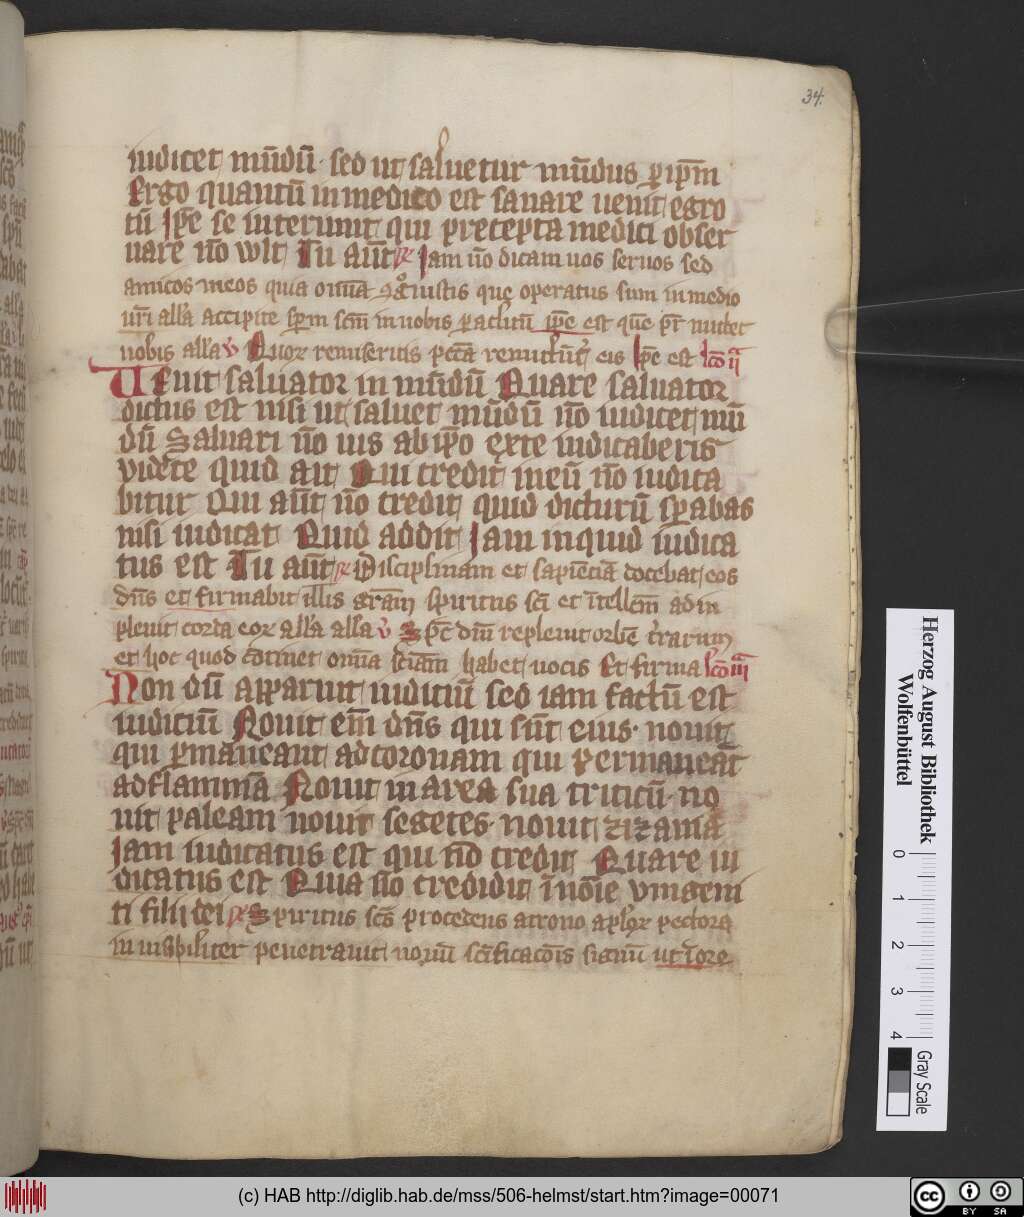 34.
iudicet mu̅du̅ · sed ut saluetur mu̅dus ꝑ ip̅m
Ergo quantu̅ in medico est sanare uenit egro
tu̅ Ip̅e se interimit qui precepta medici obser
uare no̅ wlt Tu au̅t ℟ Iam no̅ dicam uos seruos sed
amicos meos quia om̅ia cognouistis que operatus sum in medio
ur̅i all'a Accipite sp̅m sc̅m in uobis paclitu̅ ip̅e est que̅ pr̅ mittet
uobis alla ℣ Quoꝝ remiseritis pcc̅a remittu̅t' eis Ip̅e est lc̅o ii
Uenit saluator in mu̅du̅ Quare saluator
dictus est nisi ut saluet mu̅du̅ no̅ iudicet mu̅
du̅ Saluari no̅ uis ab ip̅o ex te iudicaberis
videte quid ait Qui credit in eu̅ no̅ iudica
bitur Qui au̅t no̅ credit quid dicturu̅ sꝑabas
nisi iudicat Quid addit Iam inquid iudica
tus est Tu au̅t ℟ Disciplinam et sapie̅cia̅ docebat eos
dn̅s et firmabit illis gr̅am spiritus sc̅i et i̅tellc̅m ad in
pleuit corda eoꝝ all'a alla ℣ Sp̅c dn̅i repleuit orbe̅ t'rarum
et hoc quod co̅tinet om̅ia scia̅m habet uocis Et firma lc̅o iii
Non du̅ apparuit iudiciu̅ sed iam factu̅ est
iudiciu̅ Nouit em̅ dn̅s qui su̅t eius · nouit
qui ꝑmaneant ad coronam qui permanea̅t
ad flamma̅ Nouit in area sua triticu̅ · no
uit paleam nouit segetes · nouit zizania
Iam iudicatus est qui no̅ credit Quare iu
dicatus est Quia no̅ credidit i̅ no̅ie vnigeni
ti filij dei ℟ Spiritus sc̅s procedens a trono apl'oꝝ pectora
in uisibiliter penetrauit nouu̅ sc̅ificaco̅is signu̅ ut i̅ ore
Herzog August Bibliothek
Wolfenbüttel
0 1 2 3 4
Gray Scale
(c) HAB http://diglib.hab.de/mss/506-helmst/start.htm?image=00071
cc BY SA